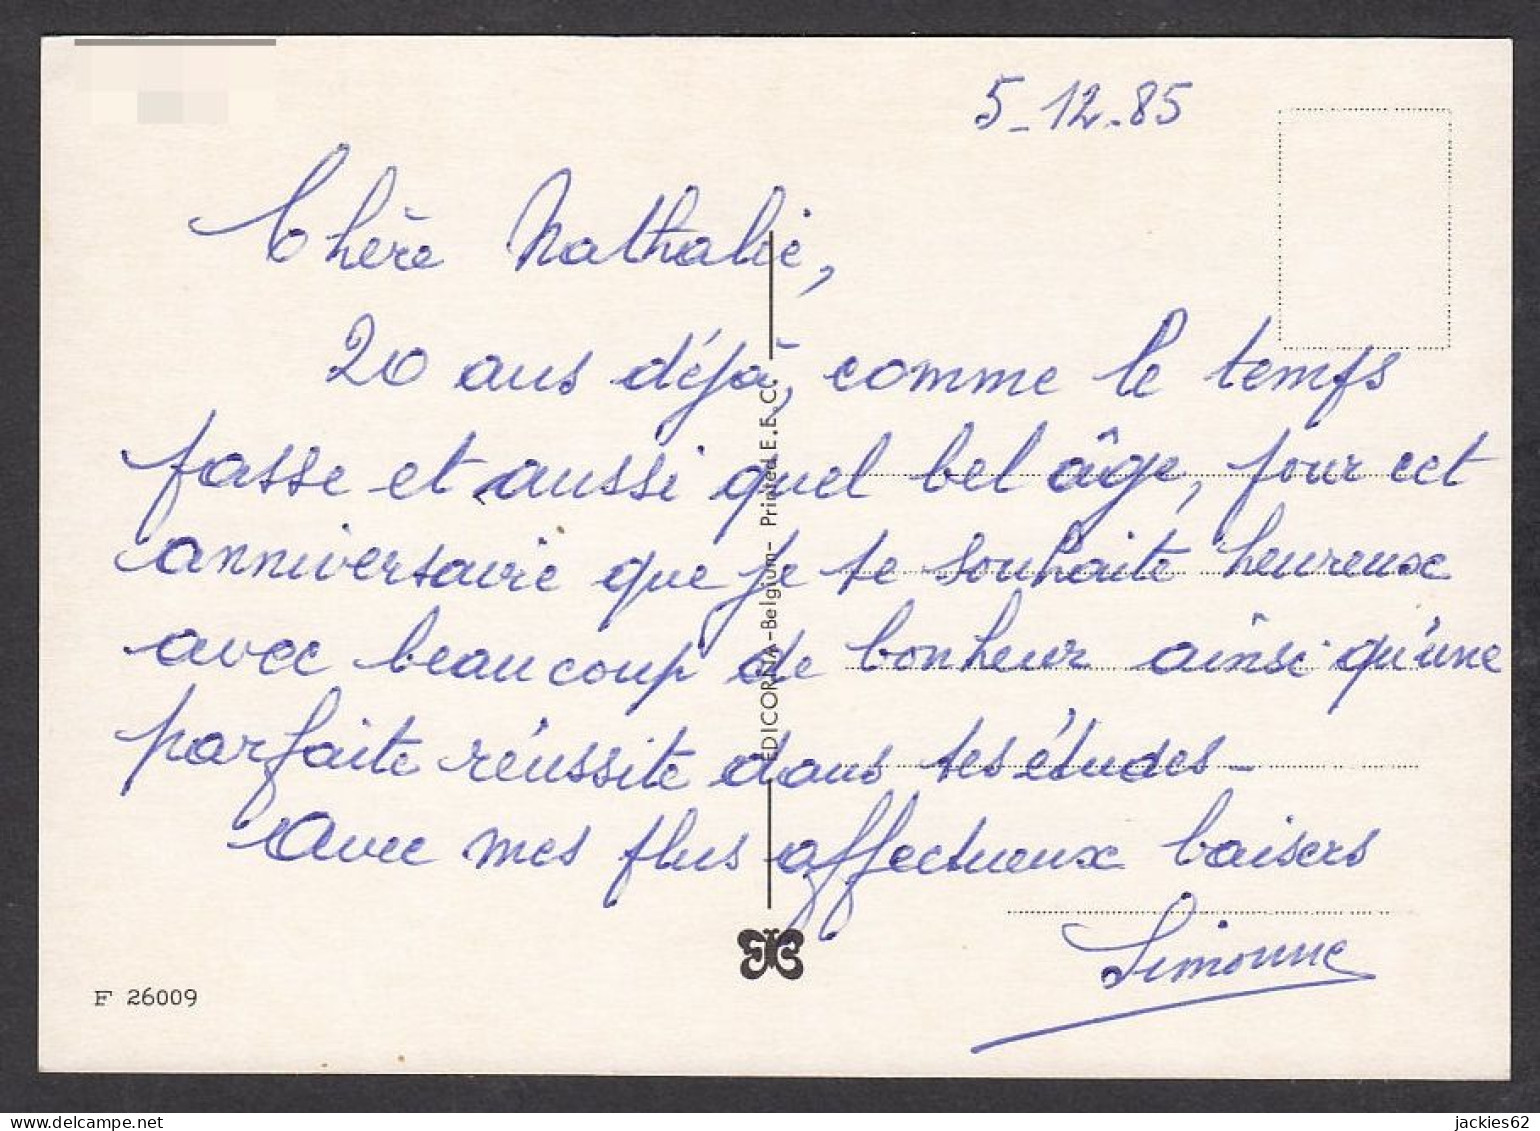 5-12-85
Chère Nathalie,
20 ans déjà, comme le temps
passe et aussi quel bel âge, pour cet
anniversaire que je te souhaite heureux
avec beaucoup de bonheur ainsi qu'une
parfaite réussite dans tes études -
Avec mes plus affectueux baisers
Simonne
EDICORNA-Belgium- Printed E.E.C.
F 26009
delcampe.net
jackies62